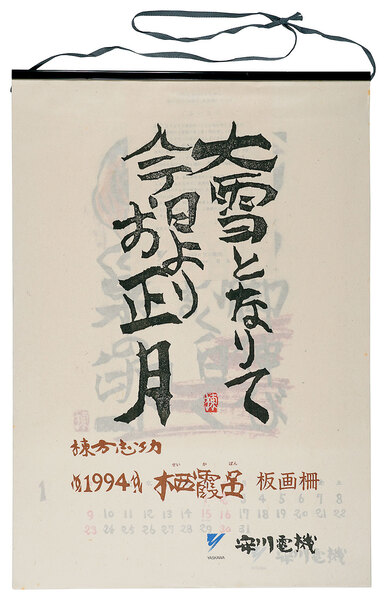 大雪となりて
今日よりお正月
棟方志功
1994
せい か ぼん
栖霞品 板画柵
1
1 2 3 4 5 6 7 8
9 10 11 12 13 14 15 16 17 18 19 20 21 22
23 24 25 26 27 28 29 30 31
YASKAWA
安川電機